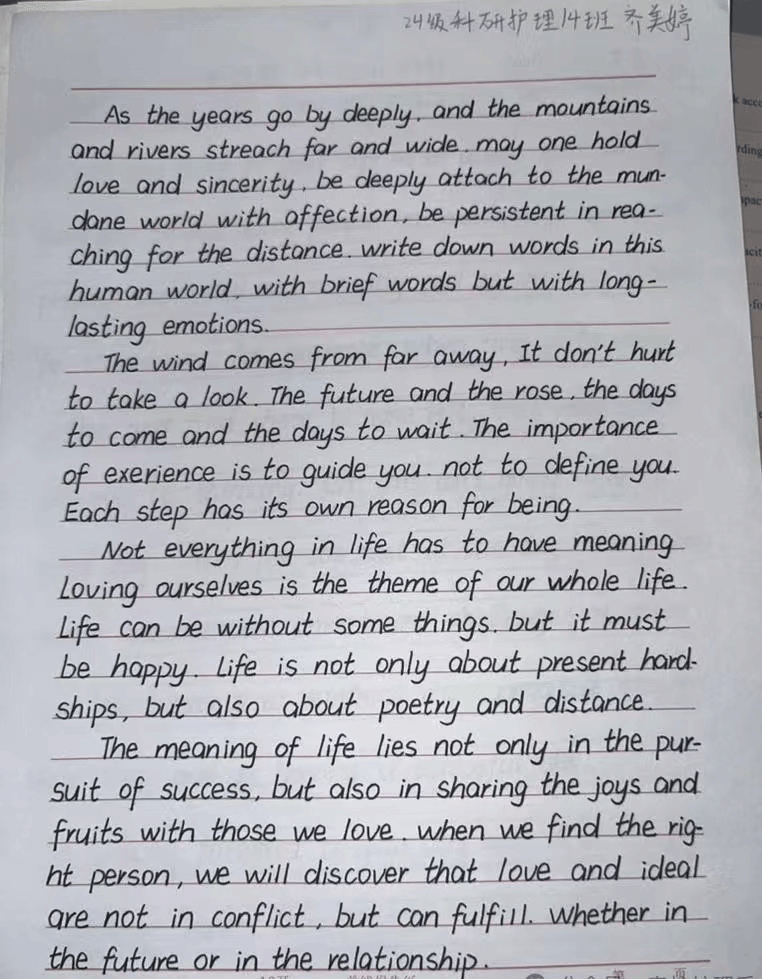 24级科研护理14班 齐美婷
As the years go by deeply, and the mountains
and rivers streach far and wide, may one hold
love and sincerity, be deeply attach to the mun-
dane world with affection, be persistent in rea-
ching for the distance. write down words in this
human world, with brief words but with long-
lasting emotions.
The wind comes from far away, It don't hurt
to take a look. The future and the rose, the days
to come and the days to wait. The importance
of exerience is to guide you. not to define you.
Each step has its own reason for being.
Not everything in life has to have meaning
Loving ourselves is the theme of our whole life.
Life can be without some things. but it must
be happy. Life is not only about present hard-
ships, but also about poetry and distance.
The meaning of life lies not only in the pur-
suit of success, but also in sharing the joys and
fruits with those we love. when we find the rig-
ht person, we will discover that love and ideal
are not in conflict, but can fulfill. Whether in
the future or in the relationship.